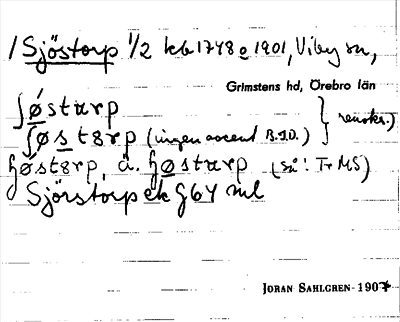 / Sjöstorp 1/2 kb 1748 o 1901, Viby sn,
Grimstens hd, Örebro län
ʃøstɐrp
ʃøstɐrp (ingen accent B.J.D.) } renskr.)
ɧøstɐrp, ä. ɧøstɐrp (så! T+MS)
Sjörstorp ek G64 ml
JÖRAN SAHLGREN 1907